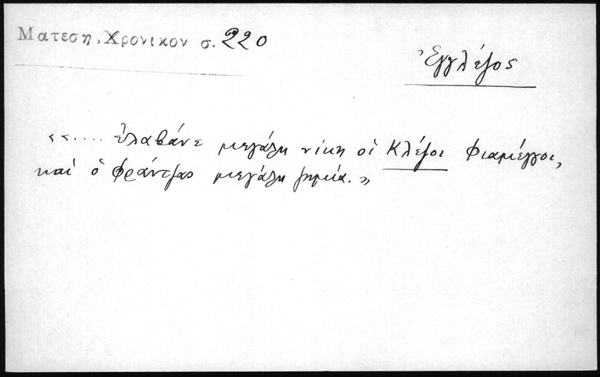 Ματεση, Χρονικον σ. 220
Ἐγγλέζος
«..... ἐλαβάνε μεγάλη νίκη οἱ Κλέζοι Φιαμέγγοι,
καί ὁ Φράντζας μεγάλη ζημία.»